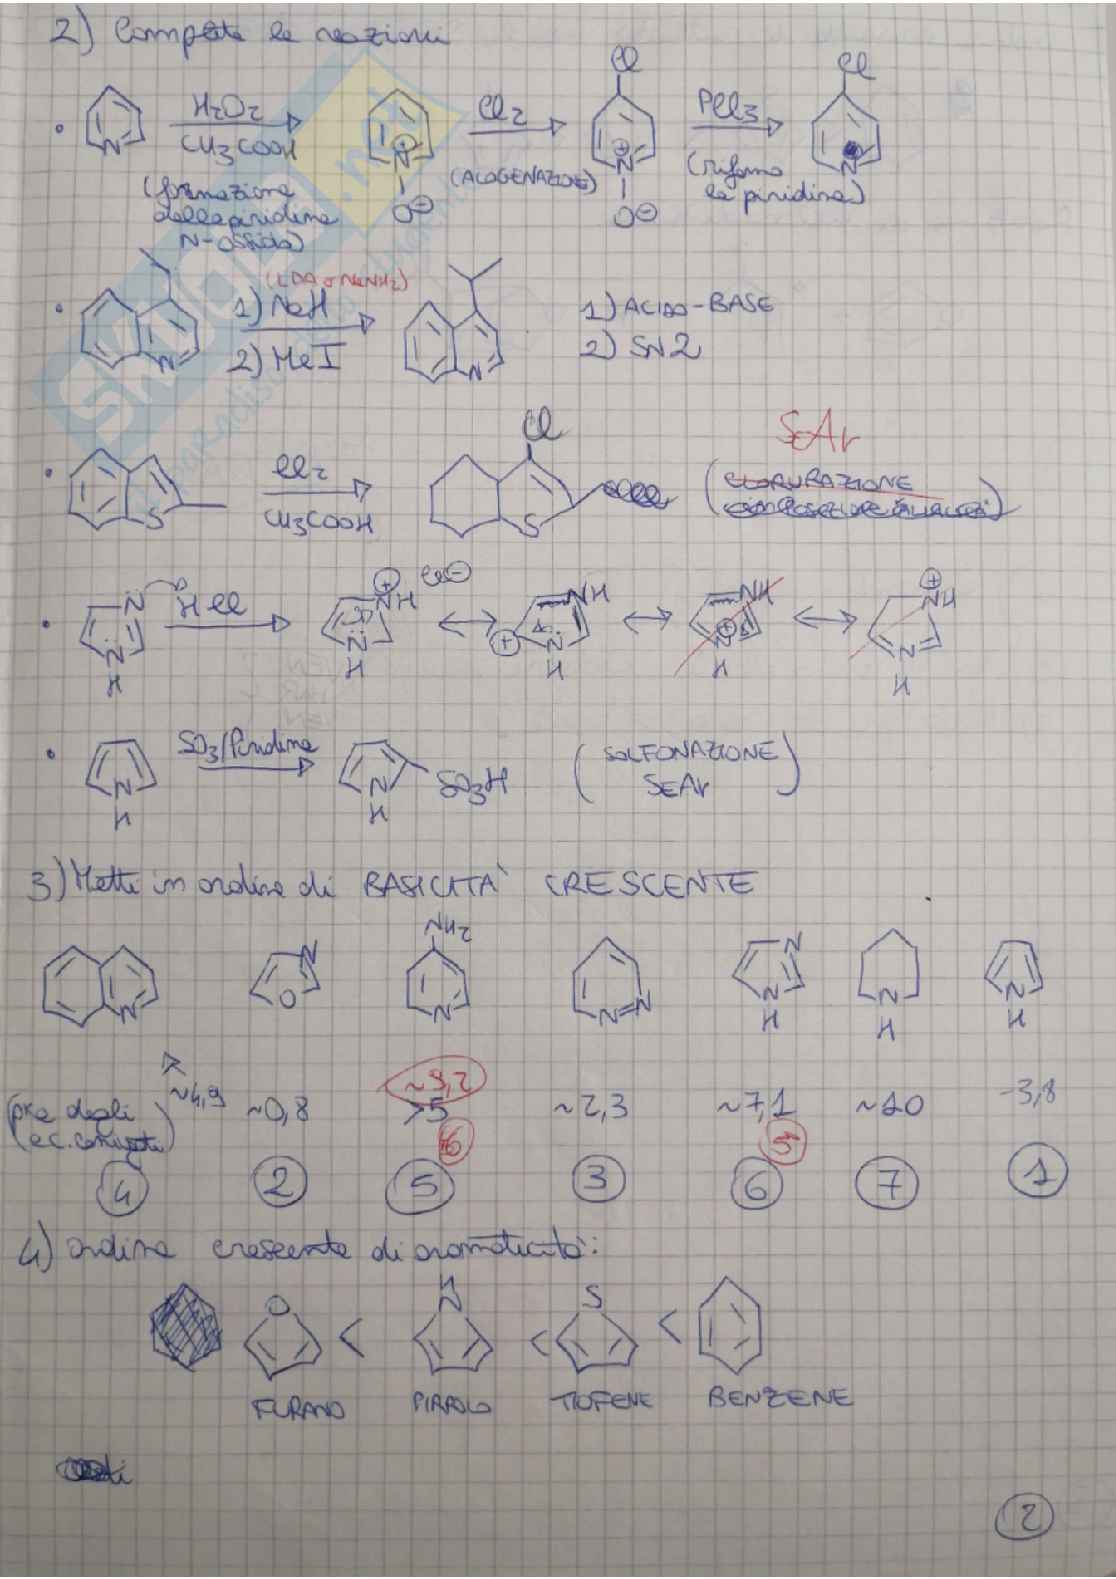 2) Completa le reazioni
N H₂O₂ CH₃COOH N⊕ O⊖ Cl₂ Cl N⊕ O⊖ PCl₃ Cl N
(formazione della piridina N-ossido)
(ALOGENAZIONE)
(riformo la piridina)
(LDA o NaNH₂)
N 1) NaH 2) MeI N
1) ACIDO-BASE
2) SN2
S Cl₂ CH₃COOH Cl S
SEAr
(CLORURAZIONE
N N H HCl ⊕ NH N H Cl⊖ NH ⊕ N H NH ⊕ N H ⊕ NH N H
N H SO₃/Piridina N H SO₃H
(SOLFONAZIONE SEAr)
3) Metti in ordine di BASICITÀ CRESCENTE
N N O NH₂ N N=N N N H N H N H
(pka degli ac. coniugati) ~4,9 ~0,8 ~9,2 >5 ~2,3 ~7,1 ~10 -3,8
6 5
4 2 5 3 6 7 1
4) ordine crescente di aromaticità:
O < H N < S <
FURANO PIRROLO TIOFENE BENZENE
2
SKUOLA.net